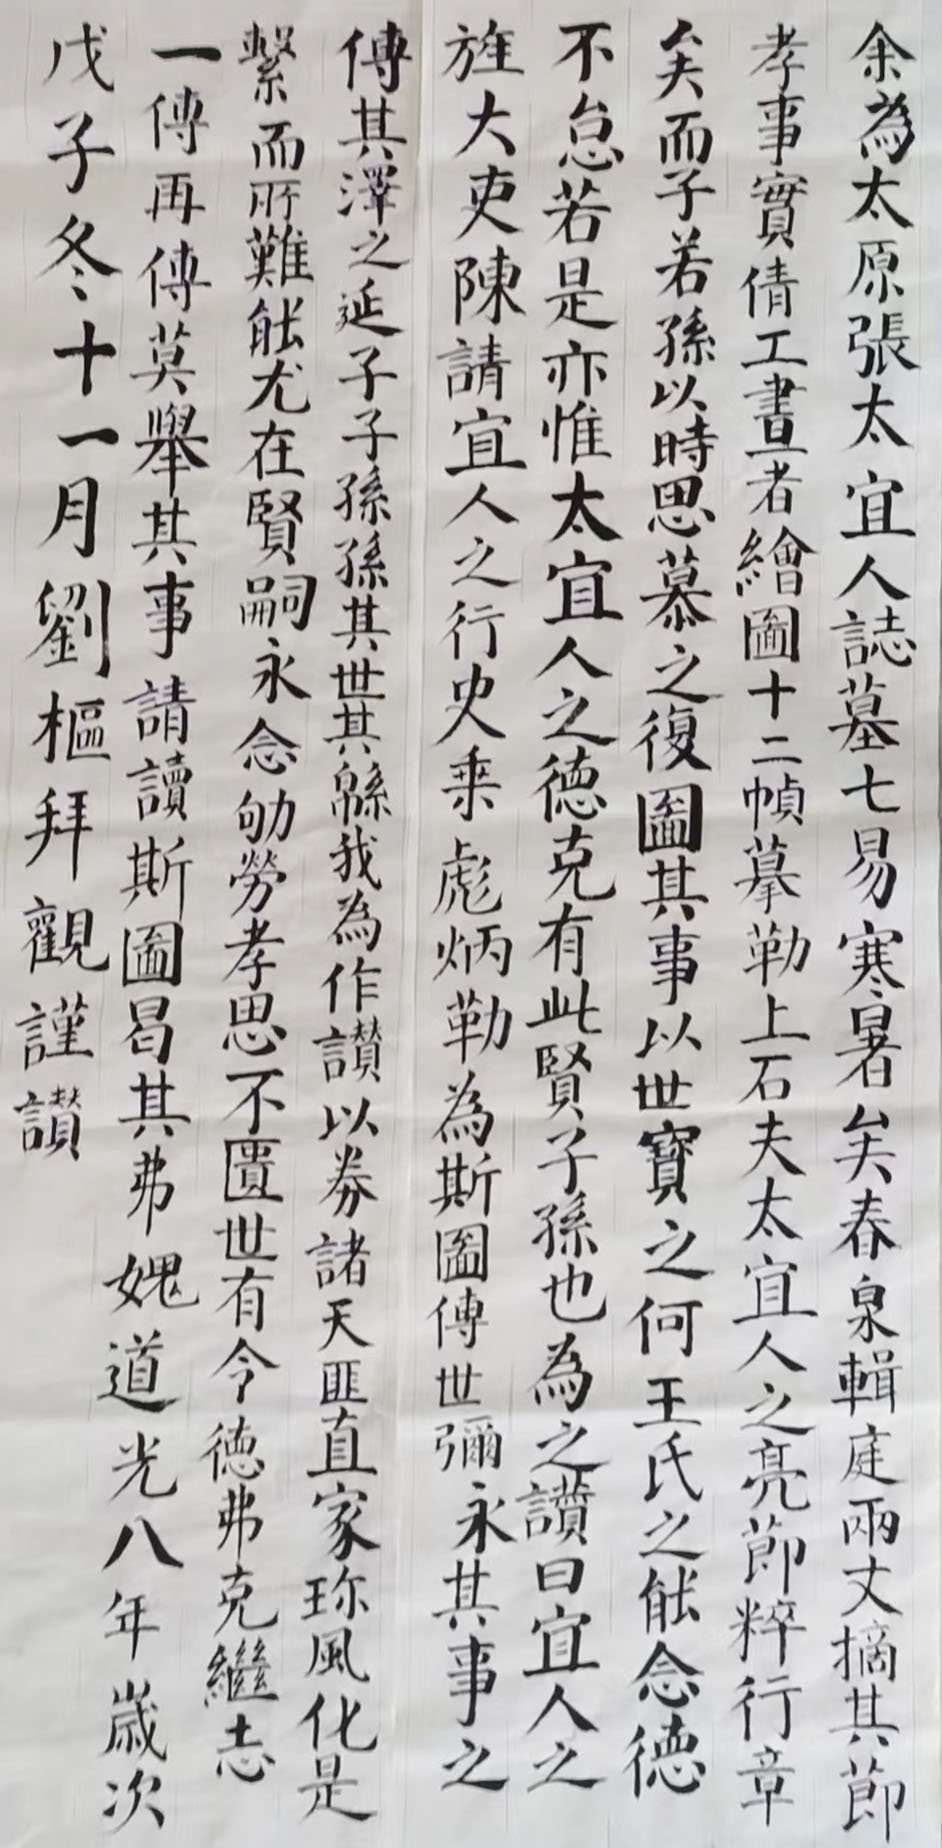 余為太原張太宜人誌墓七易寒暑矣春泉輯庭兩丈摘其節
孝事實倩工畫者繪圖十二幀摹勒上石夫太宜人之亮節粹行章
矣而子若孫以時思慕之復圖其事以世寶之何王氏之能念德
不怠若是亦惟太宜人之德克有此賢子孫也為之讃曰宜人之
旌大吏陳請宜人之行史乗彪炳勒為斯圖傳世彌永其事之
傳其澤之延子子孫孫其世其緜我為作讃以券諸天匪直家珎風化是
繫而所難能尤在賢嗣永念劬勞孝思不匱世有令德弗克繼志
一傳再傳莫舉其事請讀斯圖曷其弗媿道光八年嵗次
戊子冬十一月劉樞拜觀謹讃